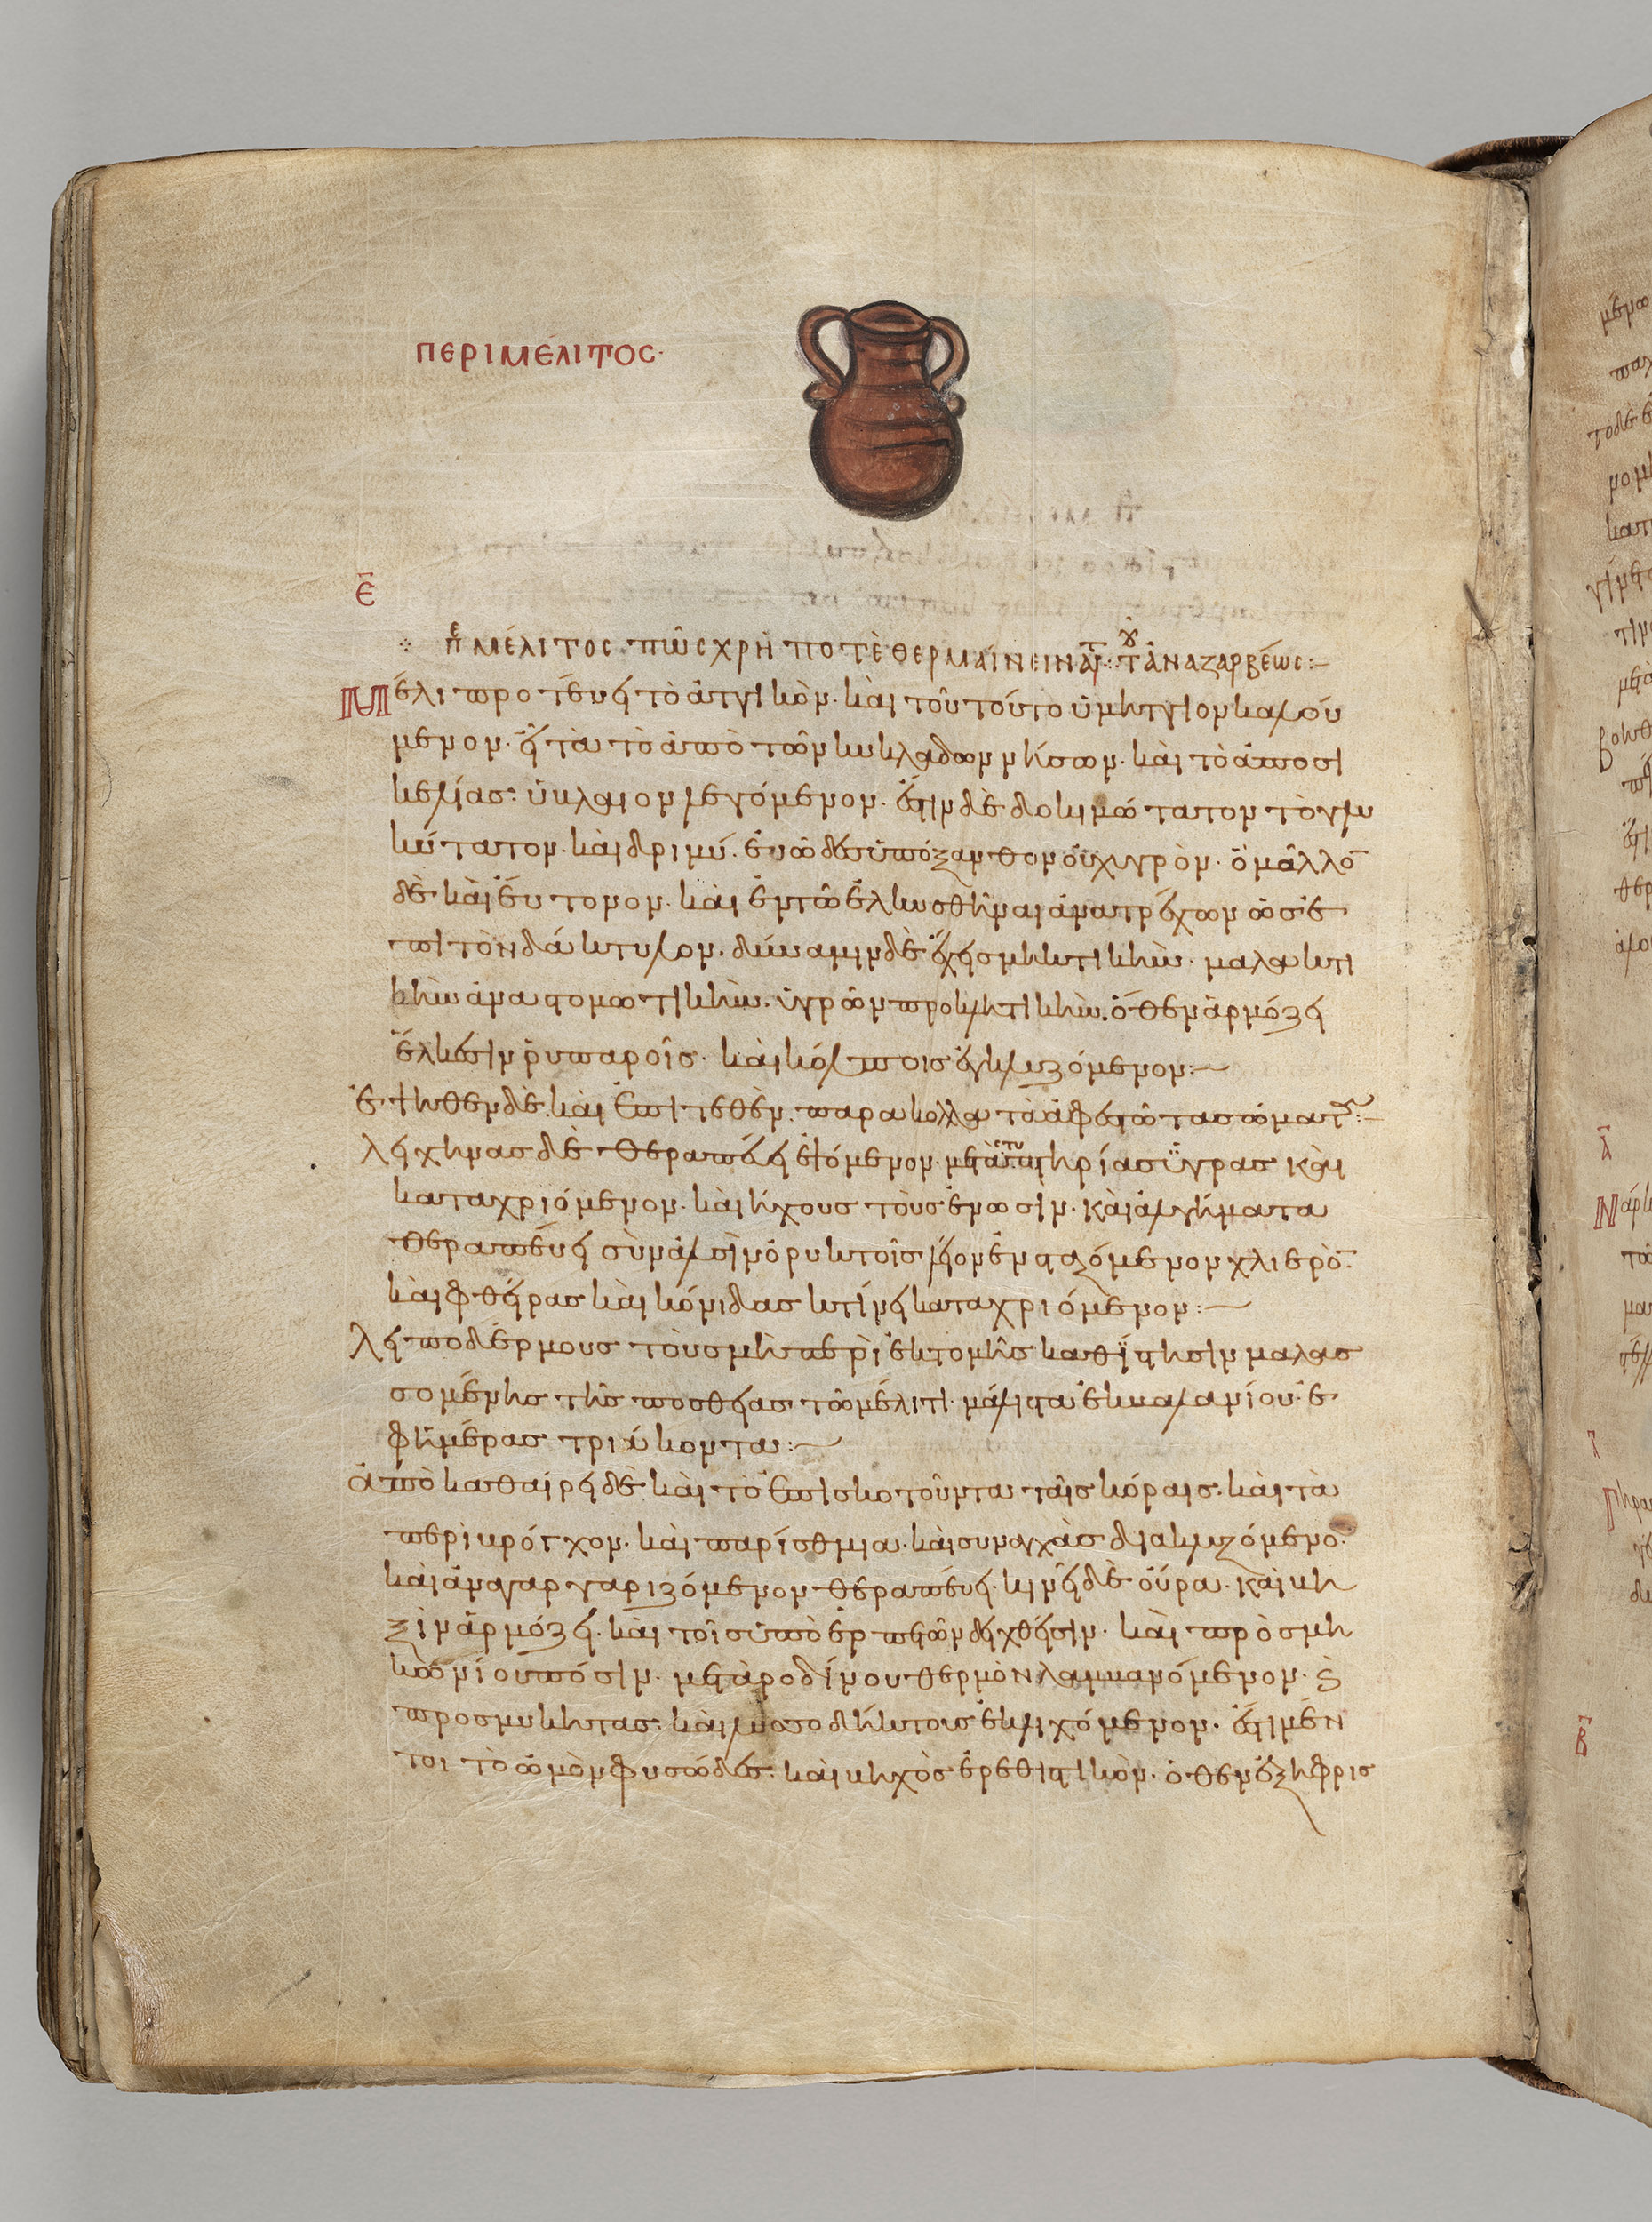 ΠΕΡΙ ΜΕΛΙΤΟΣ·
Ε
μέλιτος πῶς χρὴ ποτὲ θερμαίνειν αὐτ τοῦ ἀναζαρβέως:
Μέλι πρωτεύει τὸ ἀττικὸν· καὶ τούτου τὸ ὑμηττιον καλού
μενον· εἶτα τὸ ἀπὸ τῶν κυκλαδων νήσων· καὶ τὸ ἀπὸ σι
κελίας· ὑκλαιον λεγόμενον· ἔστιν δὲ δοκιμώτατον τὸ γλυ
κύτατον· καὶ δριμύ· εὐῶδες ὑπόξανθον οὐχ ὑγρὸν· ὁμᾶλλο
δὲ καὶ εὔτονον· καὶ ἐν τῶ ἑλκυσθῆναι ἀνατρέχων ὡς ἐ
πὶ τὸν δάκτυλον· δύναμιν δὲ ἔχει σμηκτικὴν· μαλακτι
κὴν ἀναστομωτικὴν· ὑγρῶν προκλητικὴν· ὅθεν ἁρμόζει
ἕλκεσιν ῥυπαροῖς· καὶ κόλποις ἐγκλυζόμενον:
ἑψηθεν δὲ καὶ ἐπιτεθὲν· παρακολλᾶ τὰ ἀφεστῶτα σώματ:
λειχῆνας δὲ θεραπεύει ἑψόμενον· μετὰ στυπτηρίας ὑγρας καὶ
καταχριόμενον· καὶ ἤχους τοὺς ἐν ὠσὶν· καὶ ἀλγήματα
θεραπεύει σὺν ἁλσὶν ὀρυκτοῖς λείον ἐνσταζόμενον χλιερὸ
καὶ φθεῖρας καὶ κόνιδας κτίνει καταχριόμενον:
λειποδέρμους τοὺς μὴ περὶ ἐκτομῆς καθίστησιν μαλασ
σομένης τῆς ποσθείας τῶ μέλιτι· μάλιστα ἐκ βαλανίου· ἐ
φ ἡμέρας τριάκοντα:
ἀποκαθαίρει δὲ καὶ τὸ ἐπισκοτοῦντα ταῖς κόραις· καὶ τὰ
περὶ βρόγχον· καὶ παρίσθμια· καὶ συναγχὰς διακλυζόμενο
καὶ ἀναγαργαριζόμενον θεραπεύει· κινεῖ δὲ οὔρα· καὶ βη
ξὶν ἁρμόζει· καὶ τοῖς ὑπὸ ἑρπετῶν δηχθεῖσιν· καὶ πρὸς μη
κωνίου πόσιν· μετὰ ροδίνου θερμὸν λαμβανόμενον· ἢ
προσμύκητας· καὶ λυσσοδήκτους ἐκλιχόμενον· ἔστι μέν
τοι τὸ ὠμὸν φυσῶδες· καὶ βηχὸς ἐρεθιστικὸν· ὅθεν ἐξηφρισ